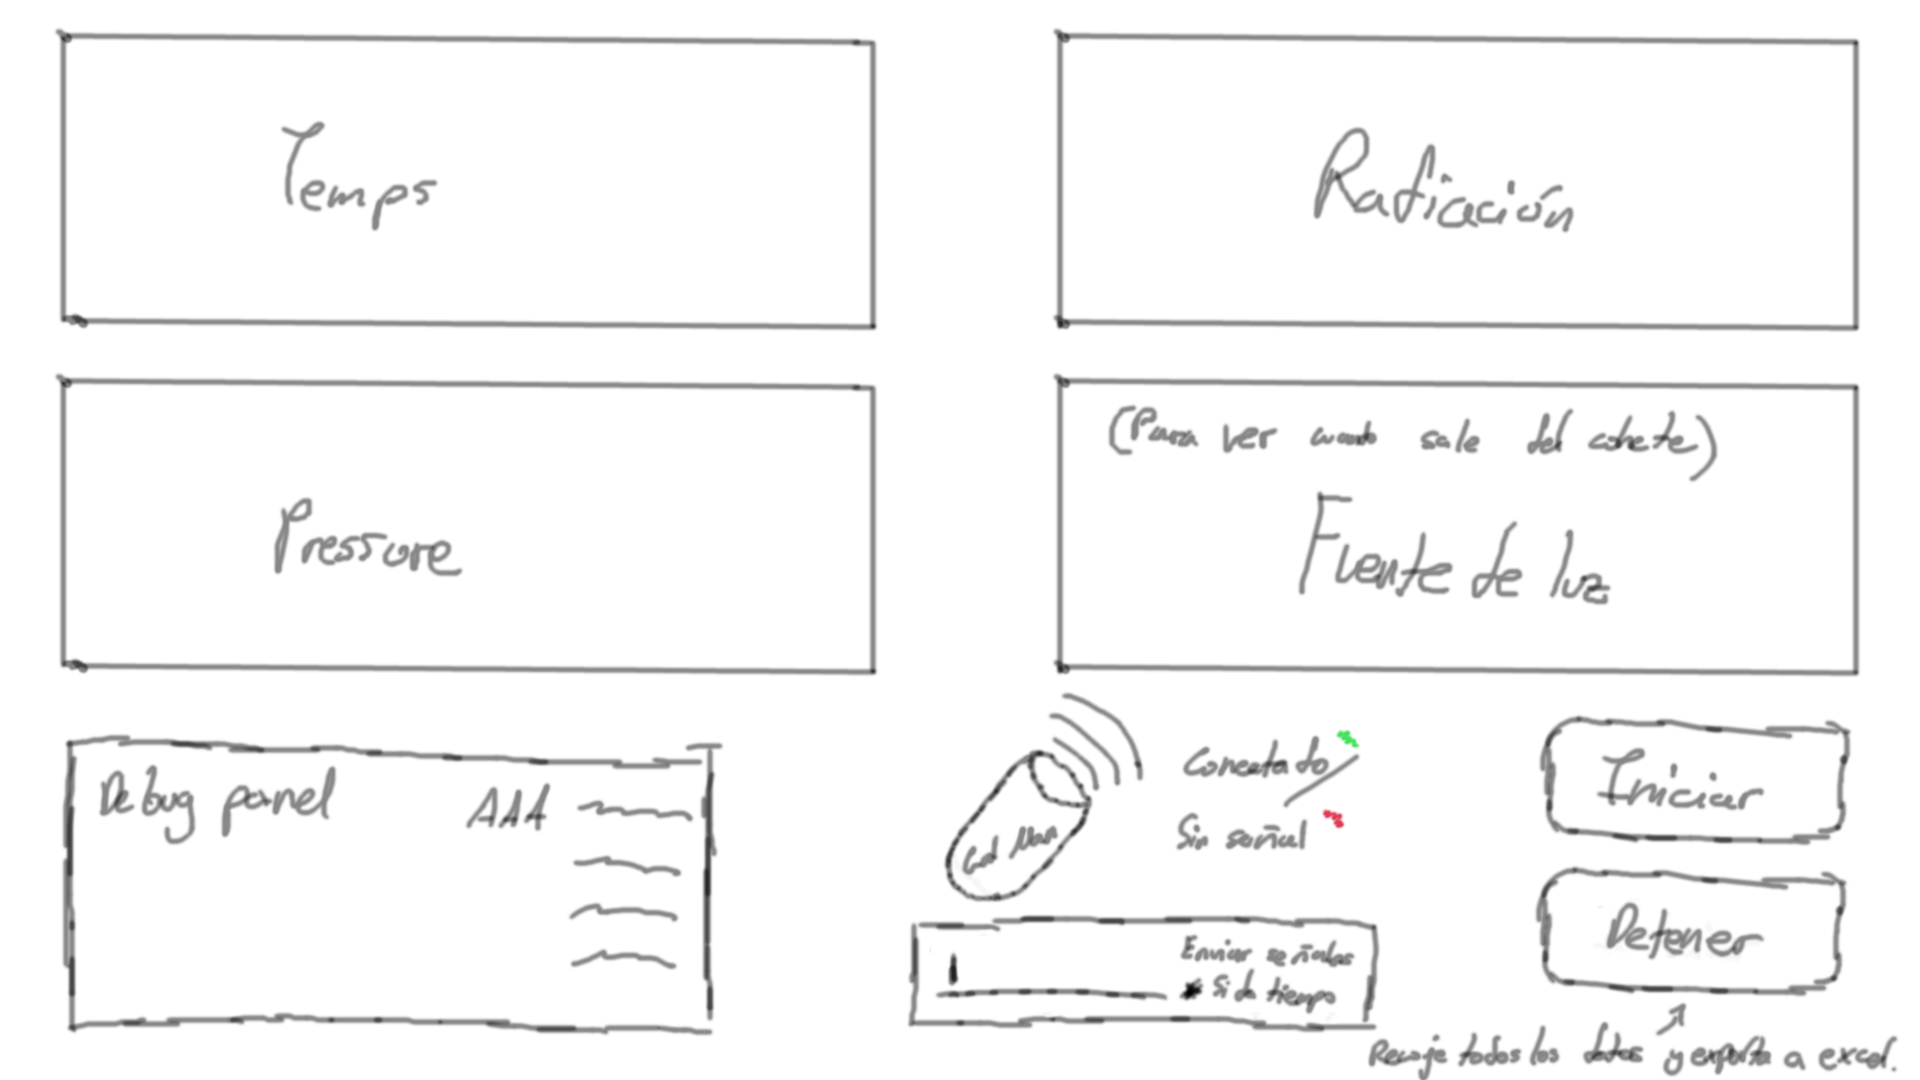 Temps
Raticación
Pressure
(Para ver cuando sale del cohete)
Fuente de luz
Debug panel
Conectado
Sin señal
Iniciar
Enviar señales
* Si da tiempo
Detener
Recoje todos los datos y exporta a excel.